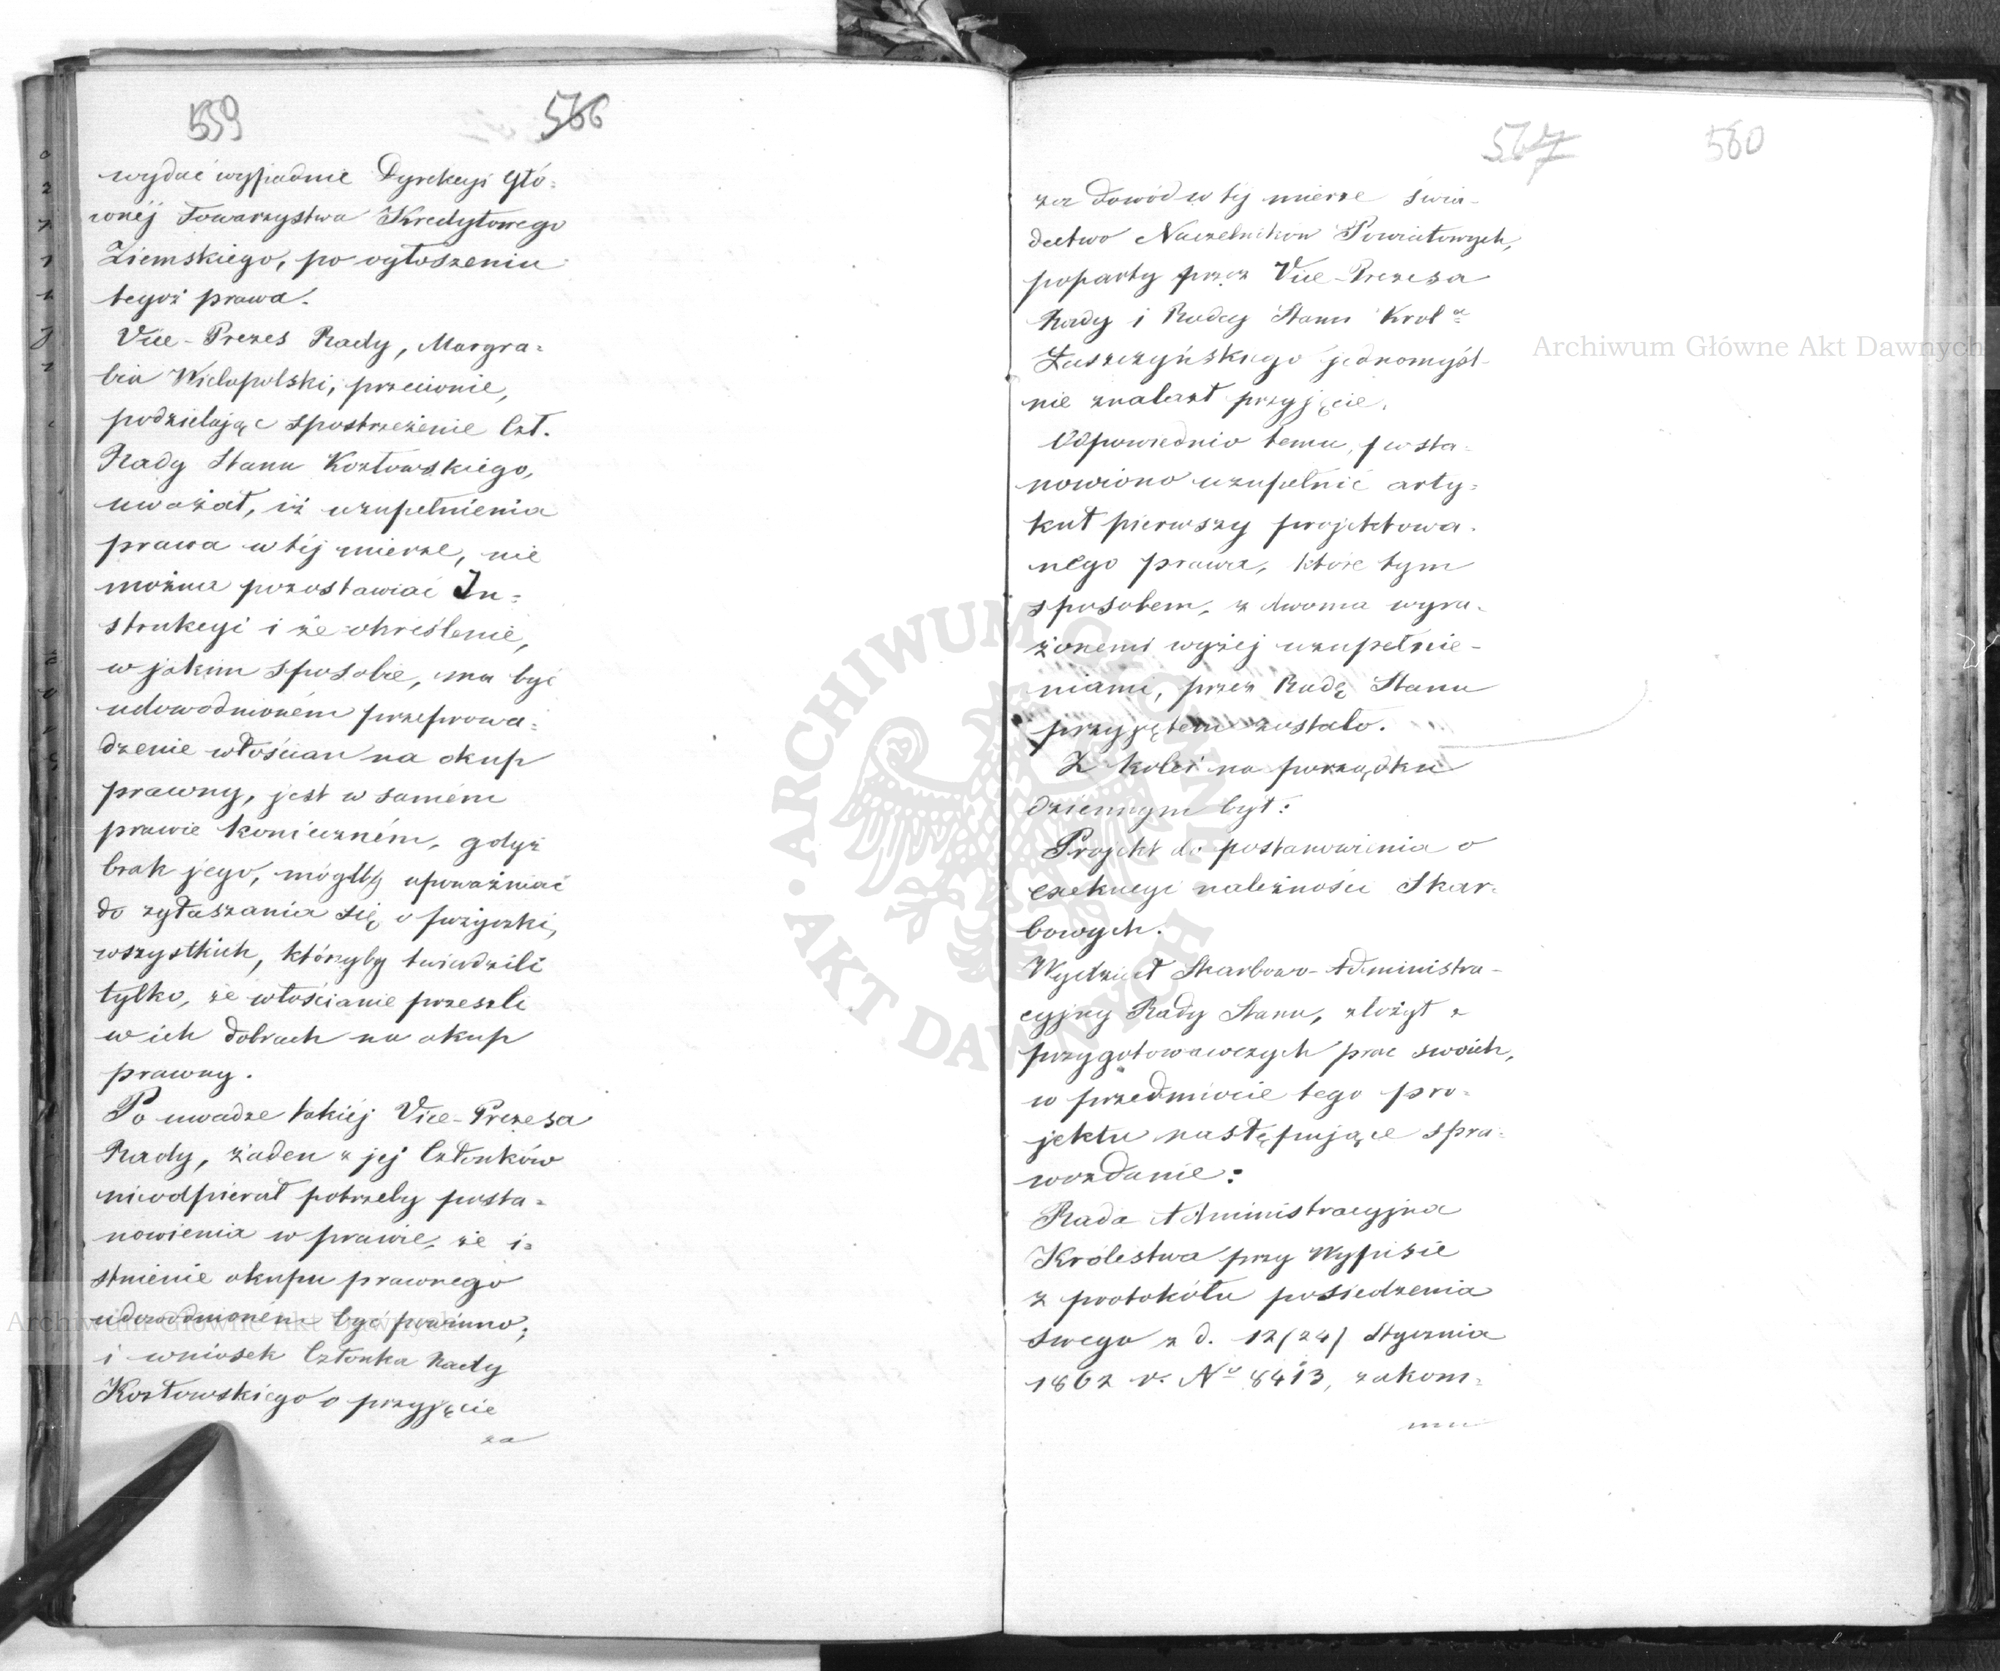 559 566
wydać wypadnie Dyrekcyi Głó-
wnéj Towarzystwa Kredytowego
Ziemskiego, po ogłoszeniu
tegoż prawa.
Vice-Prezes Rady, Margra-
bia Wielopolski, przeciwnie,
podzielając spostrzeżenie Czł.
Rady Stanu Kozłowskiego,
uważał, iż uzupełnienia
prawa w téj mierze, nie
można pozostawiać In-
strukcyi i że określenie,
w jakim sposobie, ma być
udowodnioném przeprowa-
dzenie włościan na okup
prawny, jest w samém
prawie konieczném, gdyż
brak jego, mógłby upoważniać
do zgłaszania się o pożyczki,
wszystkich, którzyby twierdzili
tylko, że włościanie przeszli
w ich dobrach na okup
prawny.
Po uwadze takiéj Vice-Prezesa
Rady, żaden z jej Członków
nieodpierał potrzeby posta-
nowienia w prawie, że i-
stnienie okupu prawnego
udowodnioném być powinno;
i wniosek Członka Rady
Kozłowskiego o przyjęcie
za
567 560
za dowód w téj mierze świa-
dectwo Naczelników Powiatowych,
poparty przez Vice-Prezesa
Rady i Radcy Stanu Krol
Łuszczyńskiego jednomyśl-
nie znalazł przyjęcie.
Odpowiednio temu, posta-
nowiono uzupełnić arty-
kuł pierwszy projektowa-
nego prawa, które tym
sposobem, z dwoma wyra-
żonemi wyżéj uzupełnie-
niami, przez Radę Stanu
przyjętem zostało.
Z kolei na porządku
dziennym był:
Projekt do postanowienia o
exekucyi należności Skar-
bowych.
Wydział Skarbowo-Administra-
cyjny Rady Stanu, złożył z
przygotowawczych prac swoich,
w przedmiocie tego pro-
jektu następujące spra-
wozdanie:
Rada Administracyjna
Królestwa przy Wypisie
z protokółu posiedzenia
swego z d. 12/24/ Stycznia
1862 r. No 8413, zakom-
mu
Archiwum Główne Akt Dawnych
Archiwum Główne Akt Dawnych
ARCHIWUM GŁÓWNE AKT DAWNYCH